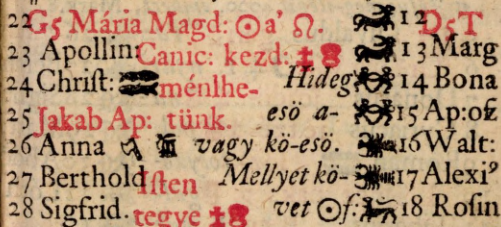 22 G5 Mária Magd: ☉ a' ♌. 12 D5T
23 Apollin: Canic: kezd: 13 Marg
24 Chriſt: ménlhe- Hideg 14 Bona
25 Jakab Ap: tünk. esö a- 15 Ap: oſz
26 Anna vagy kö-esö. 16 Walt:
27 Berthold Iſten Mellyet kö- 17 Alexi⁹
28 Sigfrid. tegye vet ☉ f: 18 Roſin